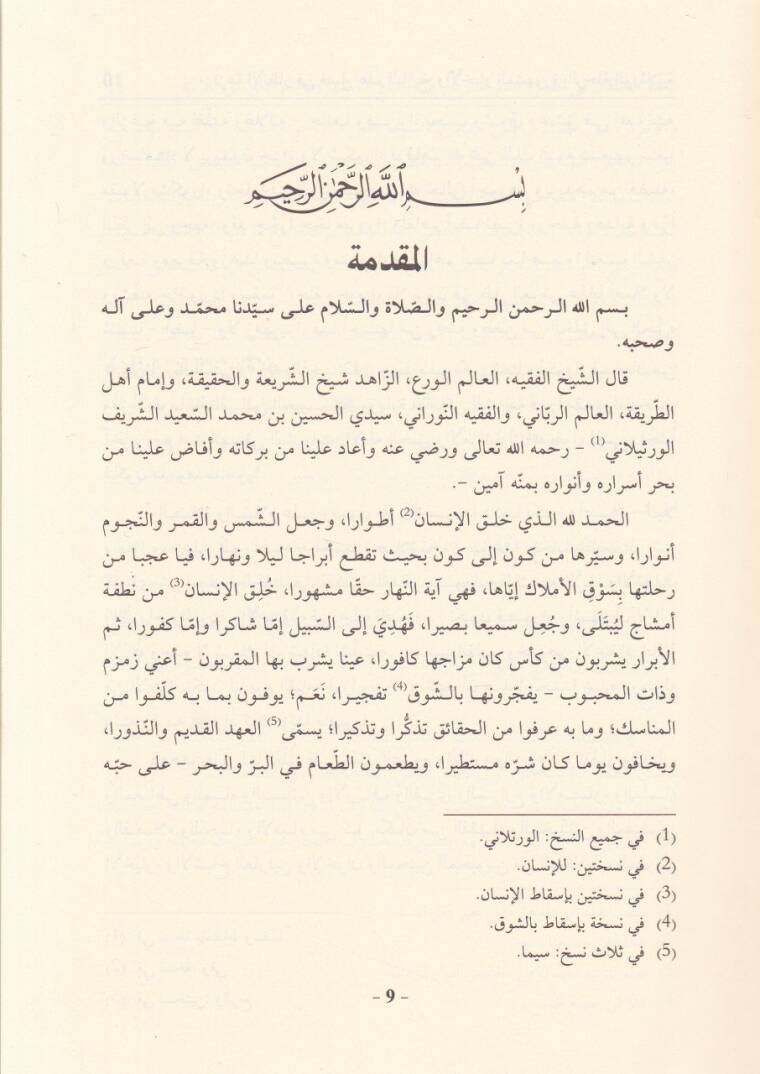 بِسْمِ ٱللَّهِ ٱلرَّحْمَٰنِ ٱلرَّحِيمِ
المقدمة
بسم الله الرحمن الرحيم والصّلاة والسّلام على سيّدنا محمّد وعلى آله
وصحبه.
قال الشّيخ الفقيه، العالم الورع، الزّاهد شيخ الشّريعة والحقيقة، وإمام أهل
الطّريقة، العالم الربّاني، والفقيه النّوراني، سيدي الحسين بن محمد السّعيد الشّريف
الورثيلاني(1) – رحمه الله تعالى ورضي عنه وأعاد علينا من بركاته وأفاض علينا من
بحر أسراره وأنواره بمنّه آمين –.
الحمد لله الذي خلق الإنسان(2) أطوارا، وجعل الشّمس والقمر والنّجوم
أنوارا، وسيّرها من كون إلى كون بحيث تقطع أبراجا ليلا ونهارا، فيا عجبا من
رحلتها بِسَوْقِ الأملاك إيّاها، فهي آية النّهار حقّا مشهورا، خُلِق الإنسان(3) من نطفة
أمشاج ليُبتَلَى، وجُعِل سميعا بصيرا، فَهُدِيَ إلى السّبيل إمّا شاكرا وإمّا كفورا، ثم
الأبرار يشربون من كأس كان مزاجها كافورا، عينا يشرب بها المقربون – أعني زمزم
وذات المحبوب – يفجّرونها بالشّوق(4) تفجيرا، نَعَم؛ يوفون بما به كلّفوا من
المناسك؛ وما به عرفوا من الحقائق تذكُّرا وتذكيرا؛ يسمّى(5) العهد القديم والنّذورا،
ويخافون يوما كان شرّه مستطيرا، ويطعمون الطّعام في البرّ والبحر – على حبّه
(1) في جميع النسخ: الورتلاني.
(2) في نسختين: للإنسان.
(3) في نسختين بإسقاط الإنسان.
(4) في نسخة بإسقاط بالشوق.
(5) في ثلاث نسخ: سيما.
- 9 -